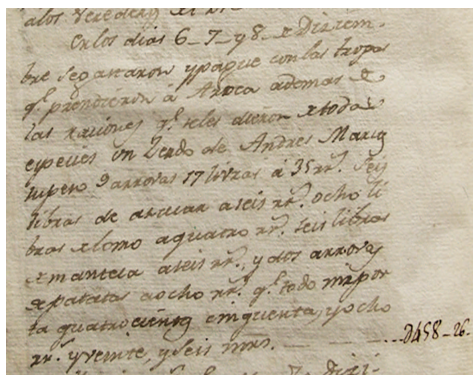 a los
En los dias 6_7_ y 8_ de Diziem-
bre se gastaron y pague con las tropas
q.e prendieron á Aroca ademas de
las raciones q.e seles dieron de todas
especies un Zerdo de Andres
supero 9 arrovas 17 livras á 35 rr.s Seis
libras de azucar a seis rr.s ocho li
bras de lomo a quatro rr.s seis libras
de manteca a seis rr.s, y dos arrovas
de patatas a ocho rr.s q.e todo impor
ta quatrocientos cinquenta, y ocho
rr.s y veinte, y seis mrs. ....D458_26.